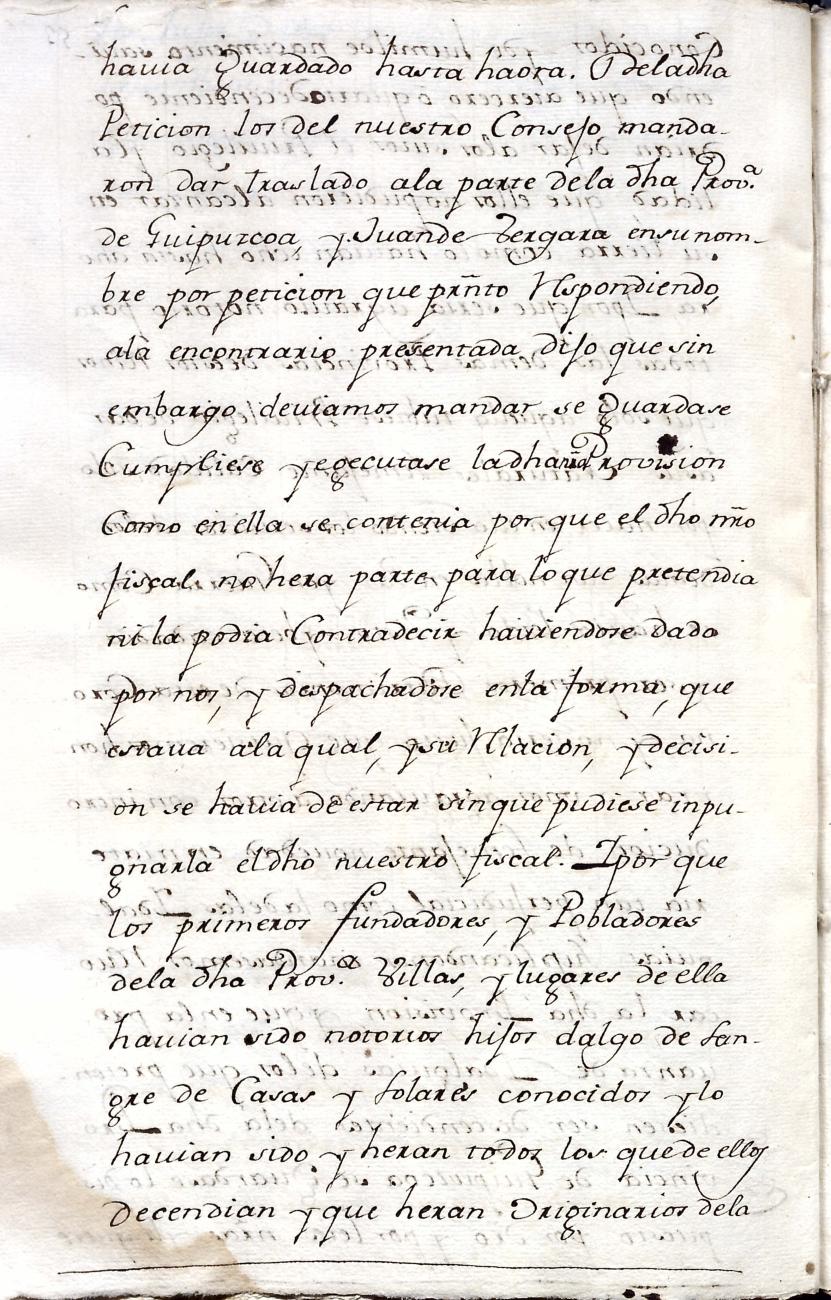 havia Guardado hasta haora. I dela dha
Peticion los del nuestro Consejo manda-
ron dar traslado ala parte dela dha Prov.ª
de Guipuzcoa, y Juan de Vergara en su nom-
bre por peticion que prñto Respondiendo,
ala encontrario presentada, dijo que sin
embargo deviamos mandar se Guardase
Cumpliese y egecutase la dha nrã Provision
Como en ella se contenia por que el dho nrõ
fiscal no hera parte para lo que pretendia
ni la podia Contradecir haviendose dado
por nos, y despachadose en la forma, que
estava a la qual, y su Relacion, y decisi-
on se havia de estar sin que pudiese inpu-
gnarla el dho nuestro fiscal. I por que
los primeros fundadores, y Pobladores
dela dha Prov.ª Villas, y lugares de ella
havian sido notorios hijos dalgo de san-
gre de Casas y solares conocidos y lo
havian sido y heran todos los que de ellos
decendian y que heran Originarios dela